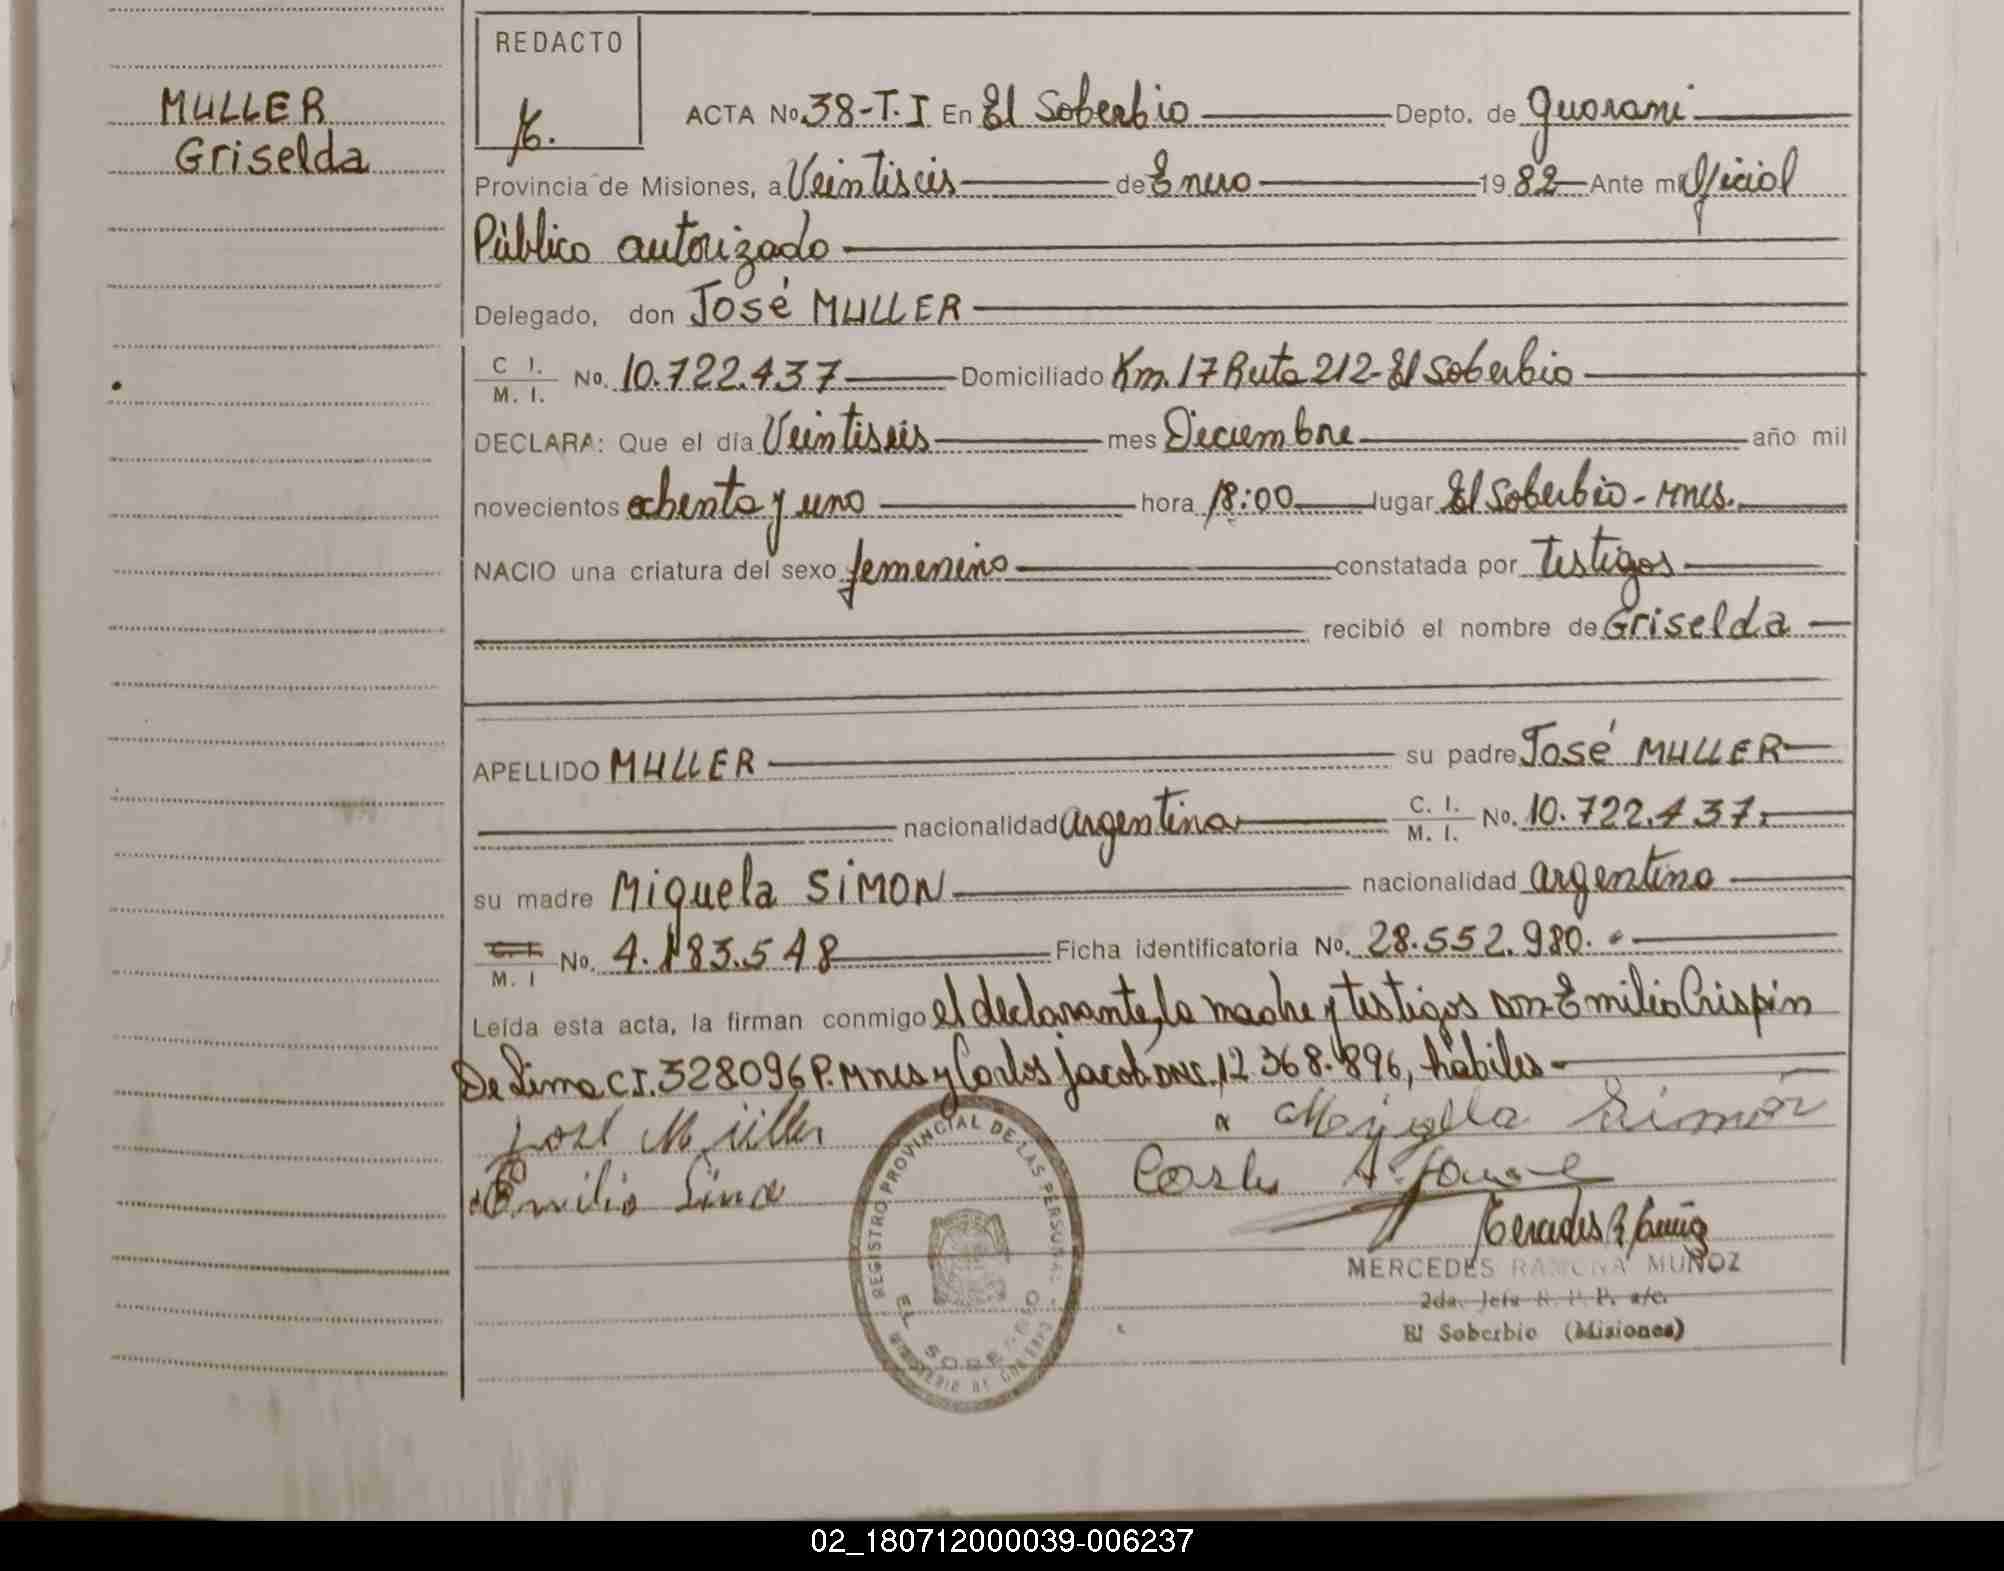 MULLER
Griselda
REDACTO
ACTA No. 38-T.I En El Soberbio Depto. de Guarani
Provincia de Misiones, a Veintiseis de Enero 19 82 Ante mi Oficial
Público autorizado
Delegado, don José MULLER
C I. / M. I. No. 10.722.437 Domiciliado Km. 17 Ruta 212-El Soberbio
DECLARA: Que el día Veintiseis mes Diciembre año mil
novecientos ochenta y uno hora 18:00 lugar El Soberbio-Mnes.
NACIO una criatura del sexo femenino constatada por testigos
recibió el nombre de Griselda
APELLIDO MULLER su padre José MULLER
nacionalidad argentina C. I. / M. I. No. 10.722.437.
su madre Miquela SIMON nacionalidad argentina
C. I. / M. I No. 4.183.548 Ficha identificatoria No. 28.552.980.
Leída esta acta, la firman conmigo el declarante, la madre y testigos don Emilio Crispín
De Lima C.I. 328096 P. Mnes y Carlos Jacob DNI. 12.368.896, hábiles
José Müller
Miquela Simon
Emilio Lima
Carlos A. Jacob
REGISTRO PROVINCIAL DE LAS PERSONAS
EL SOBERBIO
MINISTERIO DE GOBIERNO
MERCEDES RAMONA MUÑOZ
2da. Jefa R. P. P. a/c.
El Soberbio (Misiones)
02_180712000039-006237